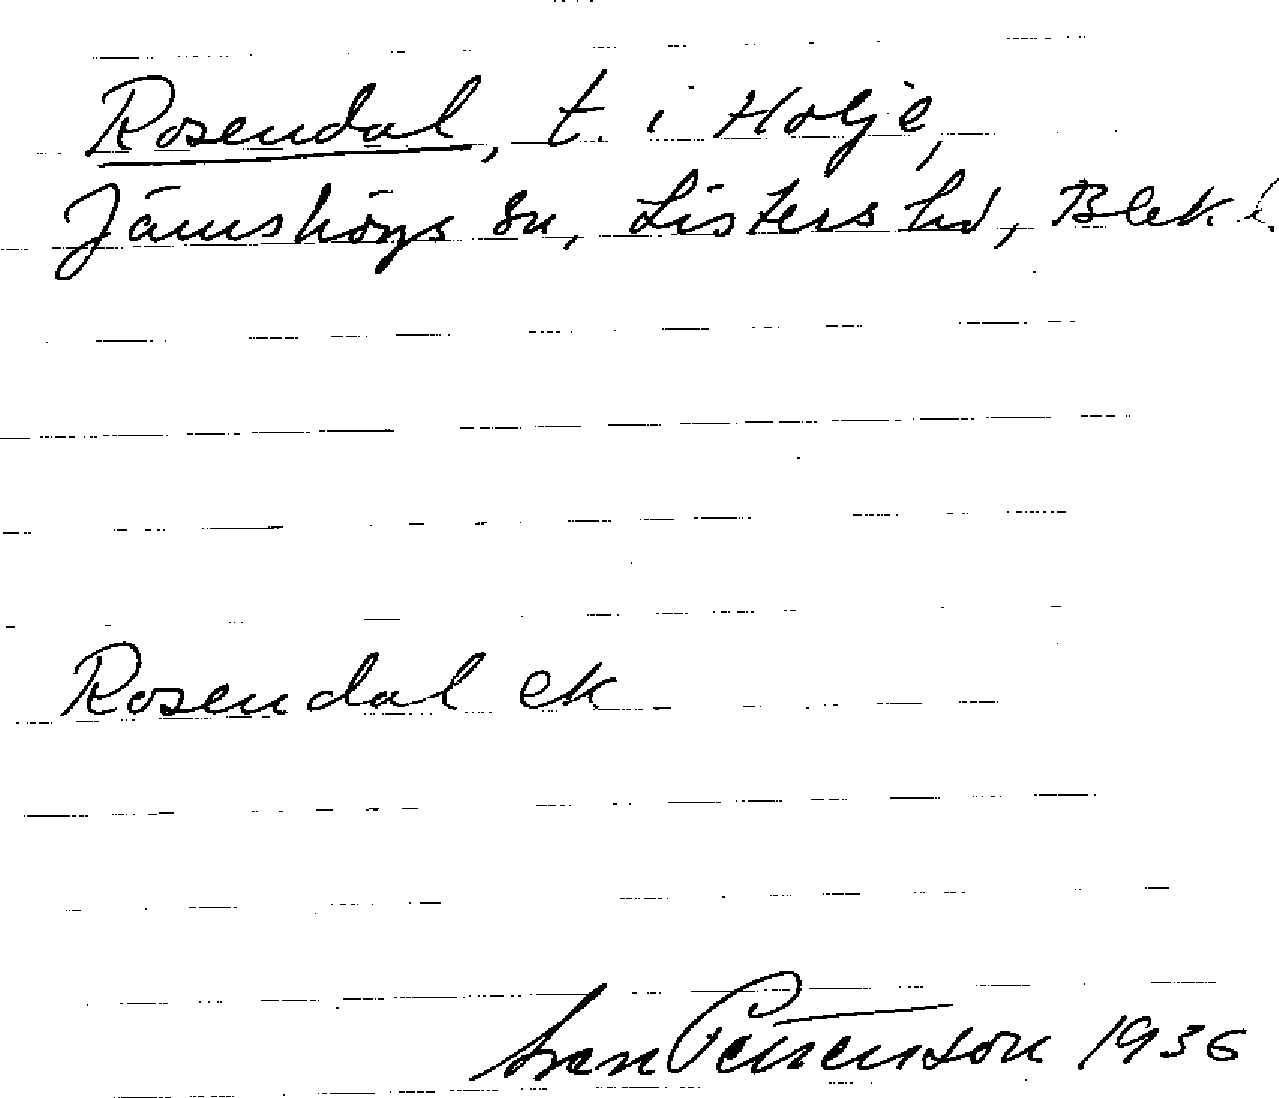 Rosendal, t. i Holje,
Jämshögs sn, Listers hd, Blek. l.
Rosendal ek
Sven Pettersson 1936